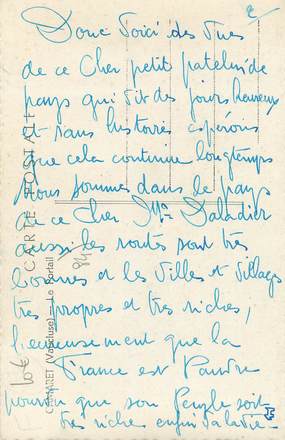 2
Donc voici des vues
de ce cher petit patelin de
pays qui vit des jours heureux
et sans histoires espérons
que cela continue longtemps
Nous sommes dans le pays
de ce cher Mr Daladier
aussi les routes sont très
bonnes et les villes et villages
très propres et très riches,
heureusement que la
France est Pauvre
pourvu que son Peuple soit
très riche enfin
CARTE POSTALE
CAMARET (Vaucluse) — Le Portail
84
10€